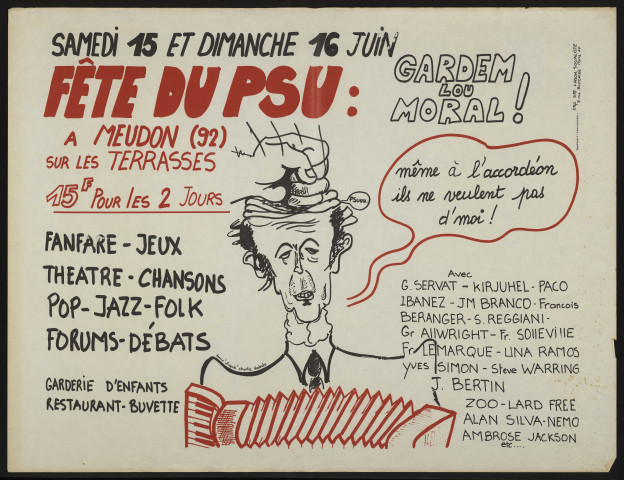 SAMEDI 15 ET DIMANCHE 16 JUIN
FÊTE DU PSU :
A MEUDON (92)
SUR LES TERRASSES
15F POUR LES 2 JOURS
GARDEM
LOU
MORAL !
même à l'accordéon
ils ne veulent pas
d'moi !
FANFARE - JEUX
THEATRE - CHANSONS
POP - JAZZ - FOLK
FORUMS - DÉBATS
GARDERIE D'ENFANTS
RESTAURANT - BUVETTE
Avec
G. SERVAT - KIRJUHEL - PACO
IBANEZ - JM BRANCO - Francois
BERANGER - S. REGGIANI -
Gr AllWRIGHT - Fr. SOllEVIllE
Fr LEMARQUE - LINA RAMOS
YVES SIMON - Steve WARRING
J. BERTIN
ZOO - LARD FREE
ALAN SILVA - NEMO
AMBROSE JACKSON
etc....